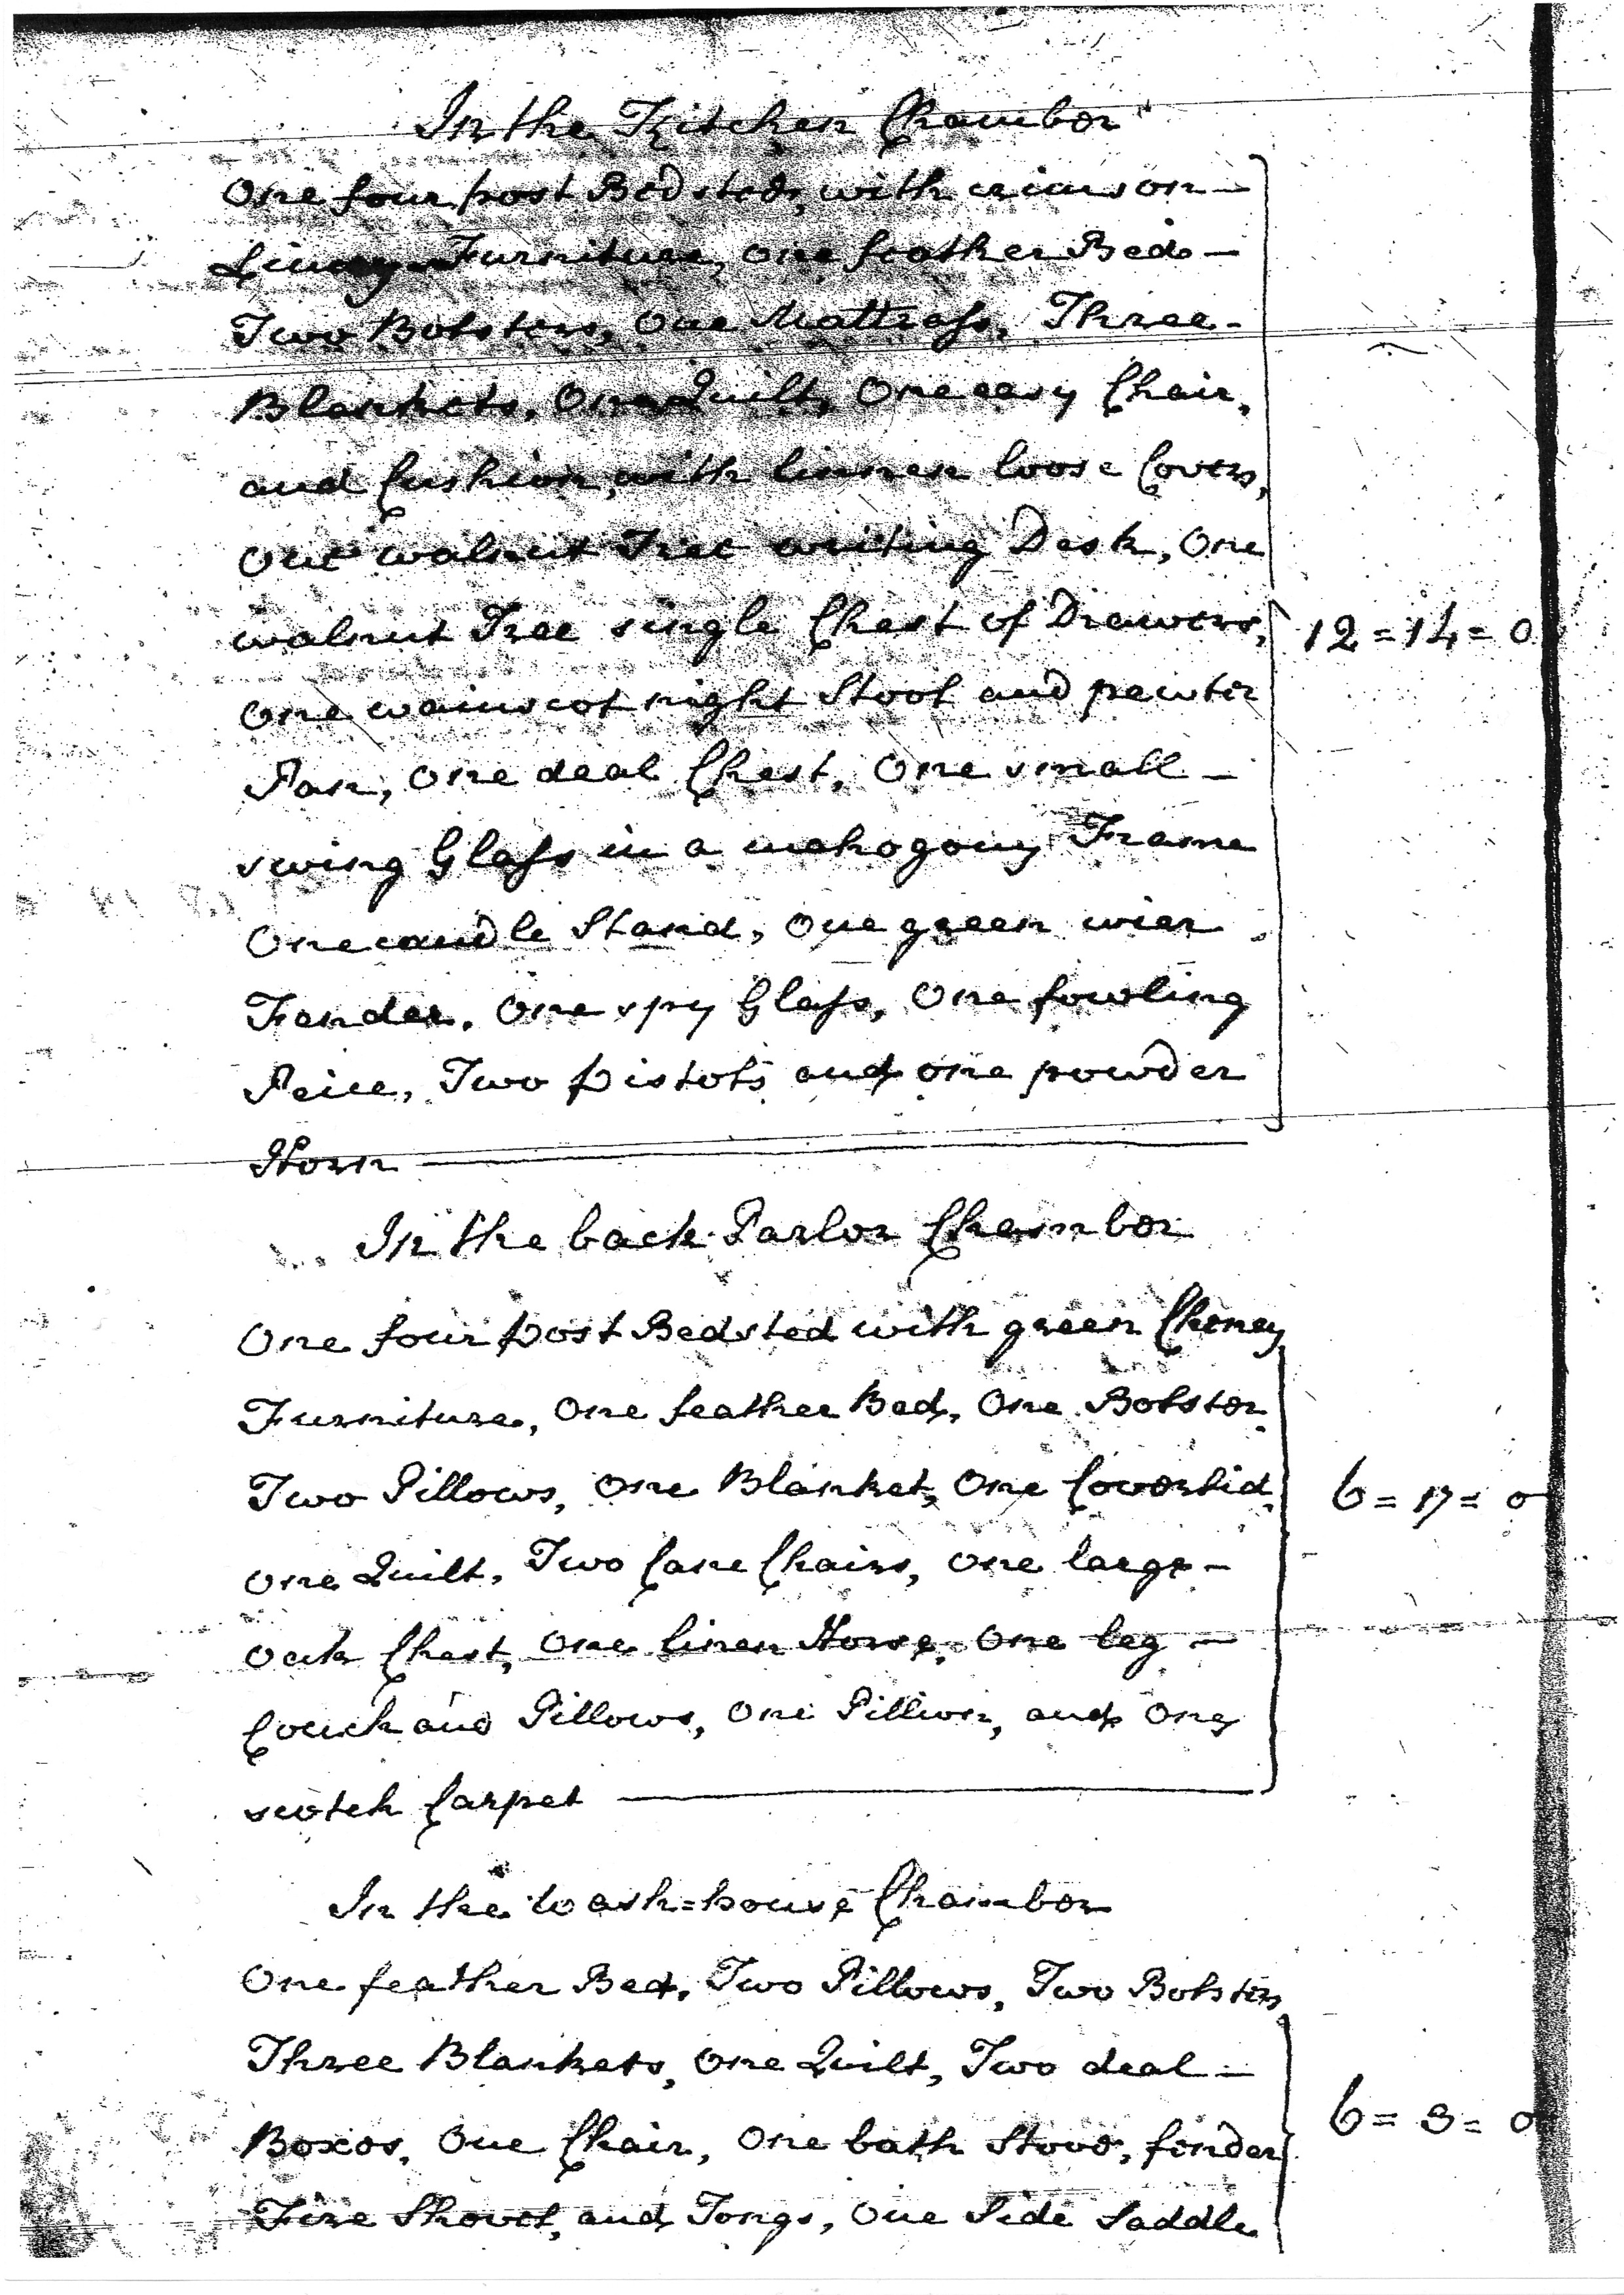 In the Kitchen Chamber
One four post Bedsted, with crimson -
Linsey Furniture, one feather Bed -
Two Bolsters, One Mattrass, Three -
Blankets, One Quilt, One easy Chair,
and Cushion, with linnen loose Covers,
One walnut Tree writing Desk, One
walnut Tree single Chest of Drawers, 12=14=0
One wainscot night Stool and pewter
Pan, One deal Chest, One small -
swing Glass in a mahogony Frame
One candle Stand, One green wier
Fender, One spy Glass, One fowling
Peice, Two pistols and one powder
Horn
In the back Parlor Chamber
One four post Bedsted with green Cheney
Furniture, One feather Bed, One Bolster
Two Pillows, One Blanket, One Coverlid 6=17=0
One Quilt, Two Cane Chairs, One large -
Oak Chest, One linen Horse, One leg -
Couch and Pillows, One Pillion, and One
scotch Carpet
In the Wash=house Chamber
One feather Bed, Two Pillows, Two Bolsters
Three Blankets, One Quilt, Two deal -
Boxes, One Chair, One bath Stove, fender 6= =0
Fire Shovel, and Tongs, One Side Saddle